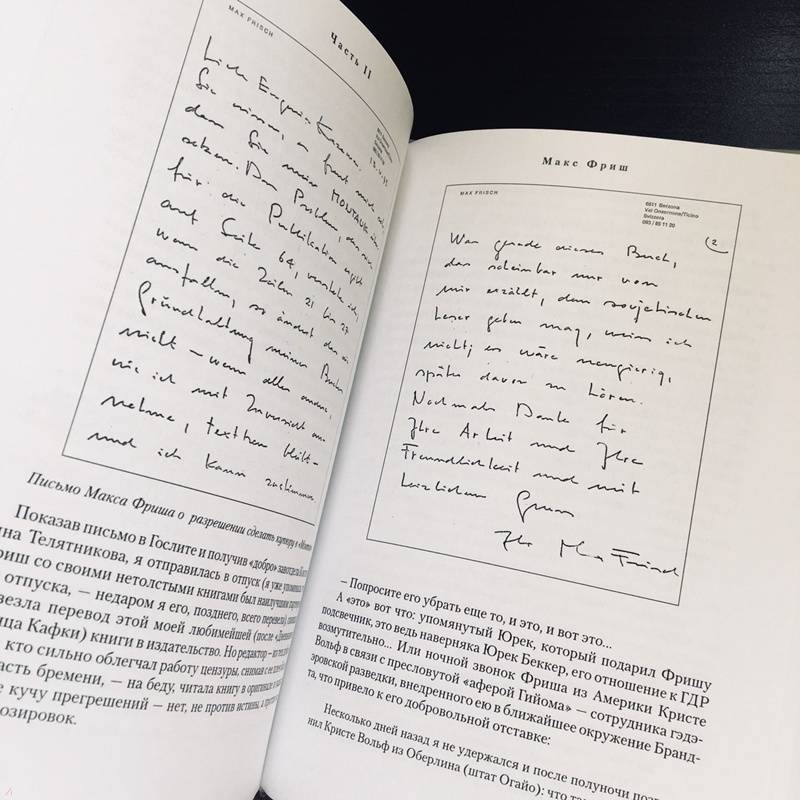 MAX FRISCH
Часть II
Evgenia Kazewa
Sie wissen, es freut mich,
dass Sie meine MONTAUK über-
setzen. Das Problem, das sich
für die Publikation ergibt
auf Seite 64, verstehe ich,
wenn die Zeilen 21 bis 27
ausfallen, so ändert das die
Grundhaltung meines Buches
nicht – wenn alles andere,
wie ich mit Zuversicht an-
nehme, texttreu bleibt –
und ich kann zustimmen
Письмо Макса Фриша о разрешении сделать купюру в
Показав письмо в Гослите и получив «добро»
на Телятникова, я отправилась в отпуск (я уже
риш со своими нетолстыми книгами был наилучшим
отпуска, — недаром я его, позднего, всего перевела),
везла перевод этой моей любимейшей (после
ца Кафки) книги в издательство. Но редактор –
кто сильно облегчал работу цензуры,
асть бремени, — на беду, читала книгу в оригинале
е кучу прегрешений — нет, не против истины, а
озировок.
Макс Фриш
MAX FRISCH
6611 Berzona
Val Onsernone/Ticino
Svizzera
093 / 85 11 20
2
Was gerade dieses Buch,
das scheinbar nur von
mir erzählt, dem sovjetischen
Leser geben mag, weiss ich
nicht; es wäre neugierig,
später davon zu hören.
Nochmals Dank für
Ihre Arbeit und Ihre
Freundlichkeit und mit
herzlichem Gruss
Ihr Max Frisch
– Попросите его убрать еще то, и это, и вот это...
А «это» вот что: упомянутый Юрек, который подарил Фришу
подсвечник, это ведь наверняка Юрек Беккер, его отношение к ГДР
возмутительно... Или ночной звонок Фриша из Америки Кристе
Вольф в связи с пресловутой «аферой Гийома» — сотрудника гэдэ-
эровской разведки, внедренного ею в ближайшее окружение Бранд-
та, что привело к его добровольной отставке:
Несколько дней назад я не удержался и после полуночи
нил Кристе Вольф из Оберлина (штат Огайо): что